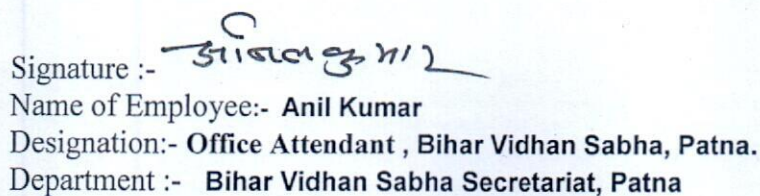 Signature :- अनिल कुमार
Name of Employee:- Anil Kumar
Designation:- Office Attendant , Bihar Vidhan Sabha, Patna.
Department :- Bihar Vidhan Sabha Secretariat, Patna